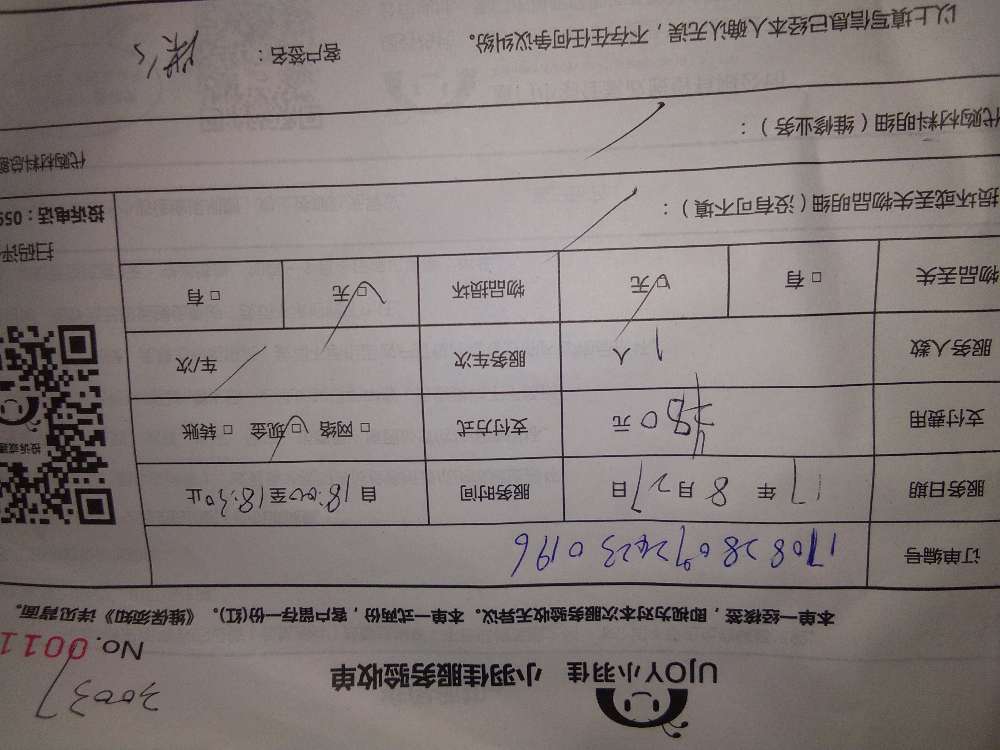 UJOY小羽佳 小羽佳服务验收单
30037
No. 0011
本单一经核签，即视为对本次服务验收无异议。本单一式两份，客户留存一份(红)。《维保须知》详见背面。
订单编号
服务日期 17年8月27日 服务时间 自18:00至18:30止
支付费用 80元 支付方式 □网络 □现金 □转账
服务人数 1人 服务车次 车/次
物品丢失 □有 □无 物品损坏 □无 □有
投诉或建
扫码评
投诉电话：059
损坏或丢失物品明细（没有可不填）：
代购材料明细（维修业务）：
代购材料总
以上填写信息已经本人确认无误，不存在任何争议纠纷。 客户签名：